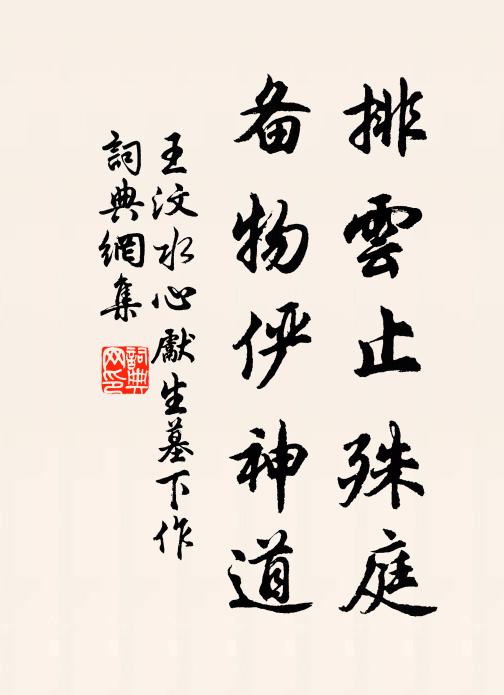 排雲止殊庭
备物俨神道
王汶水心獻生墓下作
詞典網集
詞典网印